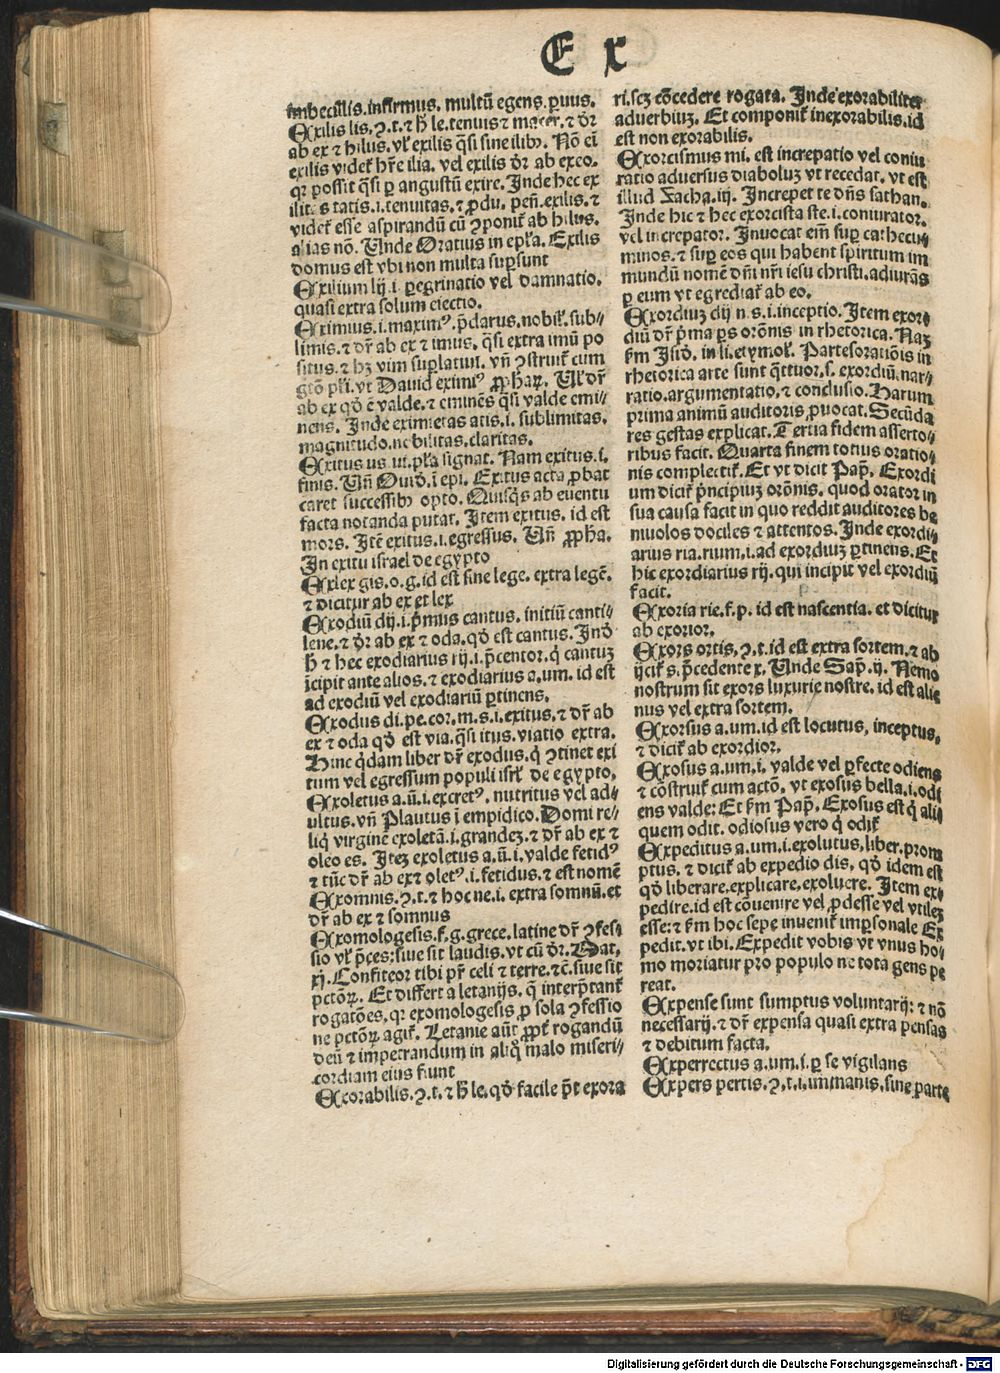 Ex
imbecillis. infirmus. multũ egens. ꝑuus.
Exilis lis. ꝯ. t. ⁊ h̃ le. tenuis ⁊ macer. ⁊ dr̃
ab ex ⁊ hilus. vl̕ exilis q̃si sine ilibꝰ. Nõ eĩ
exilis videt̕ hr̃e ilia. vel exilis dr̃ ab exeo.
qꝛ possit q̃si ꝑ angustũ exire. Inde hec ex
ilitas tatis. i. tenuitas. ⁊ ꝓdu. peñ. exilis. ⁊
videt̕ esse aspirandũ cũ ꝯponit̕ ab hilus.
alias nõ. Unde Oratius in epl̕a. Exilis
domus est vbi non multa suꝑsunt
Exilium lij. i. ꝑegrinatio vel damnatio.
quasi extra solum eiectio.
Eximius. i. maximꝰ. p̃clarus. nobil̕. sub⸗
limis. ⁊ dr̃ ab ex ⁊ imus. q̃si extra imũ po
situs. ⁊ hꝫ vim suꝑlatiui. vñ ꝯstruit̕ cum
gt̃o pl̕i. vt Dauid eximiꝰ ꝓphaꝝ. Ul̕ dr̃
ab ex qd̕ ẽ valde. ⁊ eminẽs q̃si valde emi⸗
nens. Inde eximietas atis. i. sublimitas.
magnitudo. nobilitas. claritas.
Exitus us ui. pl̕a signat. Nam exitus. i.
finis. Uñ Ouid̕. ĩ epi. Exitus acta ꝓbat
caret successibꝰ opto. Quisq̃s ab euentu
facta notanda putat. Item exitus. id est
mors. Itẽ exitus. i. egressus. Uñ ꝓpha.
In exitu israel de egypto
Exlex gis. o. g. id est sine lege. extra legẽ.
⁊ dicitur ab ex et lex
Exodiũ dij. i. p̃mus cantus. initiũ canti⸗
lene. ⁊ dr̃ ab ex ⁊ oda. qd̕ est cantus. Ind̕
h̃ ⁊ hec exodiarius rij. i. p̃centor. q̕ cantuꝫ
ĩcipit ante alios. ⁊ exodiarius a. um. id est
ad exodiũ vel exodiariũ ꝑtinens.
Exodus di. pe. cor. m. s. i. exitus. ⁊ dr̃ ab
ex ⁊ oda qd̕ est via. q̃si itus. viatio extra.
Hinc q̕dam liber dr̃ exodus. q̕ ꝯtinet exi
tum vel egressum populi isrl̕ de egypto.
Exoletus a. ũ. i. excretꝰ. nutritus vel ad⸗
ultus. vñ Plautus ĩ empidico. Domi re⸗
liq̕ virginẽ exoletã. i. grandeꝫ. ⁊ dr̃ ab ex ⁊
oleo es. Iteꝫ exoletus a. ũ. i. valde fetidꝰ
⁊ tũc dr̃ ab ex ⁊ oletꝰ. i. fetidus. ⁊ est nomẽ
Exomnis. ꝯ. t. ⁊ hoc ne. i. extra somnũ. et
dr̃ ab ex ⁊ somnus
Exomologesis. f. g. grece. latine dr̃ ꝯfes⸗
sio vl̕ p̃ces: siue sit laudis. vt cũ dr̃. Mat.
xj. Confiteor tibi pr̃ celi ⁊ terre. ⁊c̃. siue sit
pctõꝝ. Et differt a letanijs. q̃ interp̃tant̕
rogatões. qꝛ exomologesis ꝓ sola ꝯfessio
ne pctõꝝ agit̕. Letanie aũt ꝓpt̕ rogandũ
deũ ⁊ impetrandum in aliq̃ malo miseri⸗
cordiam eius fiunt
Exorabilis. ꝯ. t. ⁊ h̃ le. qd̕ facile p̃t exora
ri. scꝫ cõcedere rogata. Inde exorabiliter
aduerbiuꝫ. Et componit̕ inexorabilis. id
est non exorabilis.
Exorcismus mi. est increpatio vel coniu
ratio aduersus diaboluꝫ vt recedat. vt est
illud Zacha. iij. Increpet te dñs sathan.
Inde hic ⁊ hec exorcista ste. i. coniurator.
vel increpator. Inuocat eĩm suꝑ cathecu⸗
minos. ⁊ suꝑ eos qui habent spiritum im
mundũ nomẽ dñi nr̃i iesu christi. adiurãs
ꝑ eum vt egrediat̕ ab eo.
Exordiuꝫ dij n. s. i. inceptio. Item exor⸗
diũ dr̃ p̃ma ꝑs orõnis in rhetorica. Naꝫ
ẜm Isid̕. in li. etymol̕. Partes orationis in
rhetorica arte sunt q̃ttuor. s. exordiũ. nar⸗
ratio. argumentatio. ⁊ conclusio. Harum
prima animũ auditoris ꝓuocat. Secũda
res gestas explicat. Tertia fidem asserto⸗
ribus facit. Quarta finem totius oratio⸗
nis complectit̕. Et vt dicit Pap̃. Exordi
um dicit̕ p̃ncipiuꝫ orõnis. quod orator in
sua causa facit in quo reddit auditores be
niuolos dociles ⁊ attentos. Inde exordi⸗
arius ria. rium. i. ad exordiuꝫ ꝑtinens. Et
hic exordiarius rij. qui incipit vel exordiũ
facit.
Exoria rie. f. p. id est nascentia. et dicitur
ab exorior.
Exors ortis. ꝯ. t. id est extra sortem. ⁊ ab
ijcit̕ s. p̃cedente x. Unde Sap̃. ij. Nemo
nostrum sit exors luxurie nostre. id est alie
nus vel extra sortem.
Exorsus a. um. id est locutus, inceptus.
⁊ dicit̕ ab exordior.
Exosus a. um. i. valde vel ꝑfecte odiens
⁊ cõstruit̕ cum actõ. vt exosus bella. i. odi
ens valde: Et ẜm Pap̃. Exosus est q̕ ali⸗
quem odit. odiosus vero q̕ odit̕
Expeditus a. um. i. exolutus, liber. prom
ptus. ⁊ dicit̕ ab expedio dis. qd̕ idem est
qd̕ liberare. explicare. exoluere. Item ex⸗
pedire. id est cõuenire vel ꝓdesse vel vtileꝫ
esse: ⁊ ẜm hoc sepe inuenit̕ imꝑsonale Ex
pedit. vt ibi. Expedit vobis vt vnus ho⸗
mo moriatur pro populo ne tota gens pe
reat.
Expense sunt sumptus voluntarij: ⁊ nõ
necessarij. ⁊ dr̃ expensa quasi extra pensas
⁊ debitum facta.
Experrectus a. um. i. ꝑ se vigilans
Expers pertis. ꝯ. t. i. immanis. sine parte
Digitalisierung gefördert durch die Deutsche Forschungsgemeinschaft - DFG